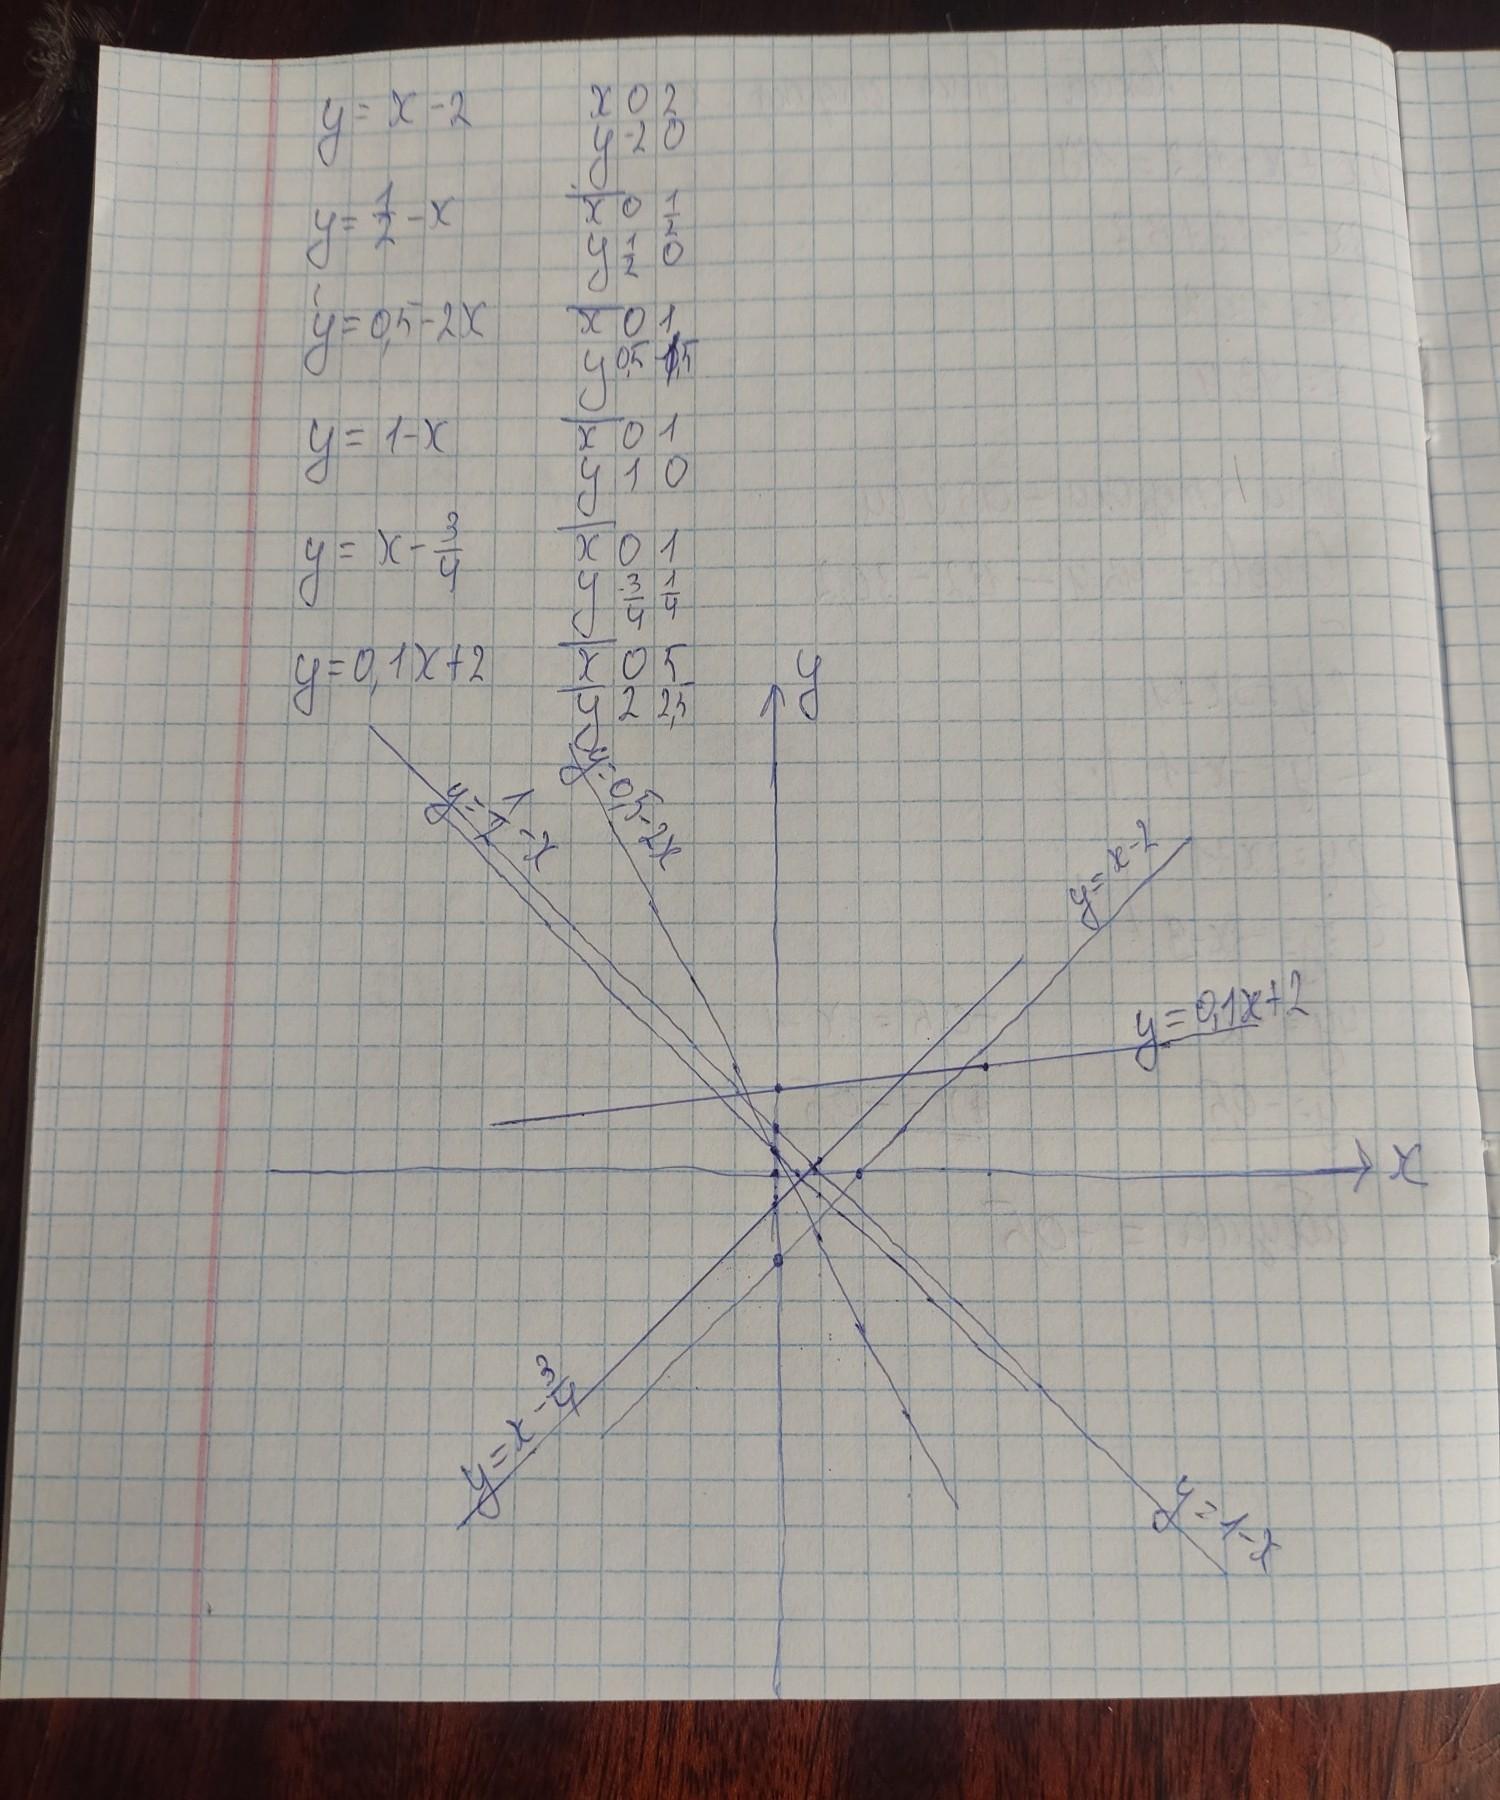 y = x - 2   x 0 2
y -2 0
y = 1/2 - x   x 0 1/2
y 1/2 0
y = 0,5 - 2x   x 0 1
y 0,5 -1,5
y = 1 - x   x 0 1
y 1 0
y = x - 3/4   x 0 1
y -3/4 1/4
y = 0,1x + 2   x 0 5
y 2 2,5
y
y = 1/2 - x
y = 0,5 - 2x
y = x - 2
y = 0,1x + 2
x
y = x - 3/4
y = 1 - x